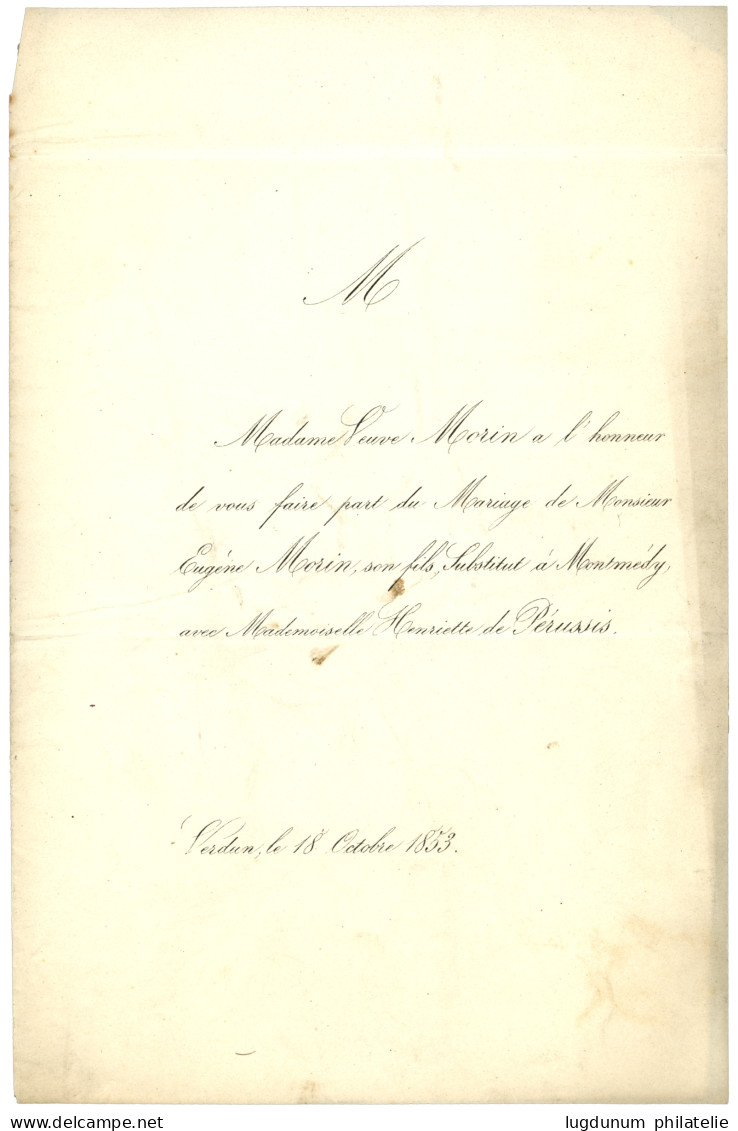 M
Madame Veuve Morin a l'honneur
de vous faire part du Mariage de Monsieur
Eugène Morin, son fils, Substitut à Montmédy,
avec Mademoiselle Henriette de Pérussis.
Verdun, le 18 Octobre 1853.
delcampe.net
lugdunum philatelie